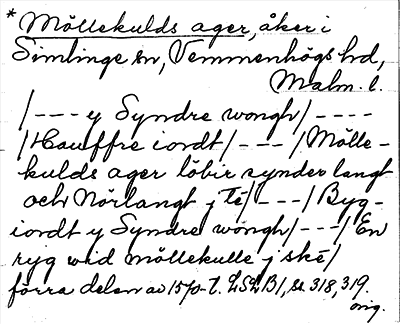 * Möllekulds ager, åker i
Simlinge sn, Vemmenhögs hd,
Malm. l.
/--- y Syndre wongh/----
/Hauffre iordt/---/Mölle-
kulds ager löbir synder langt
och Nörlangt j Té/---/Byg-
iordt y Syndre wongh/---/En
ryg wid möllekulle j ské/
förra delen av 1570-t. LSLB1, ss. 318, 319.
orig.